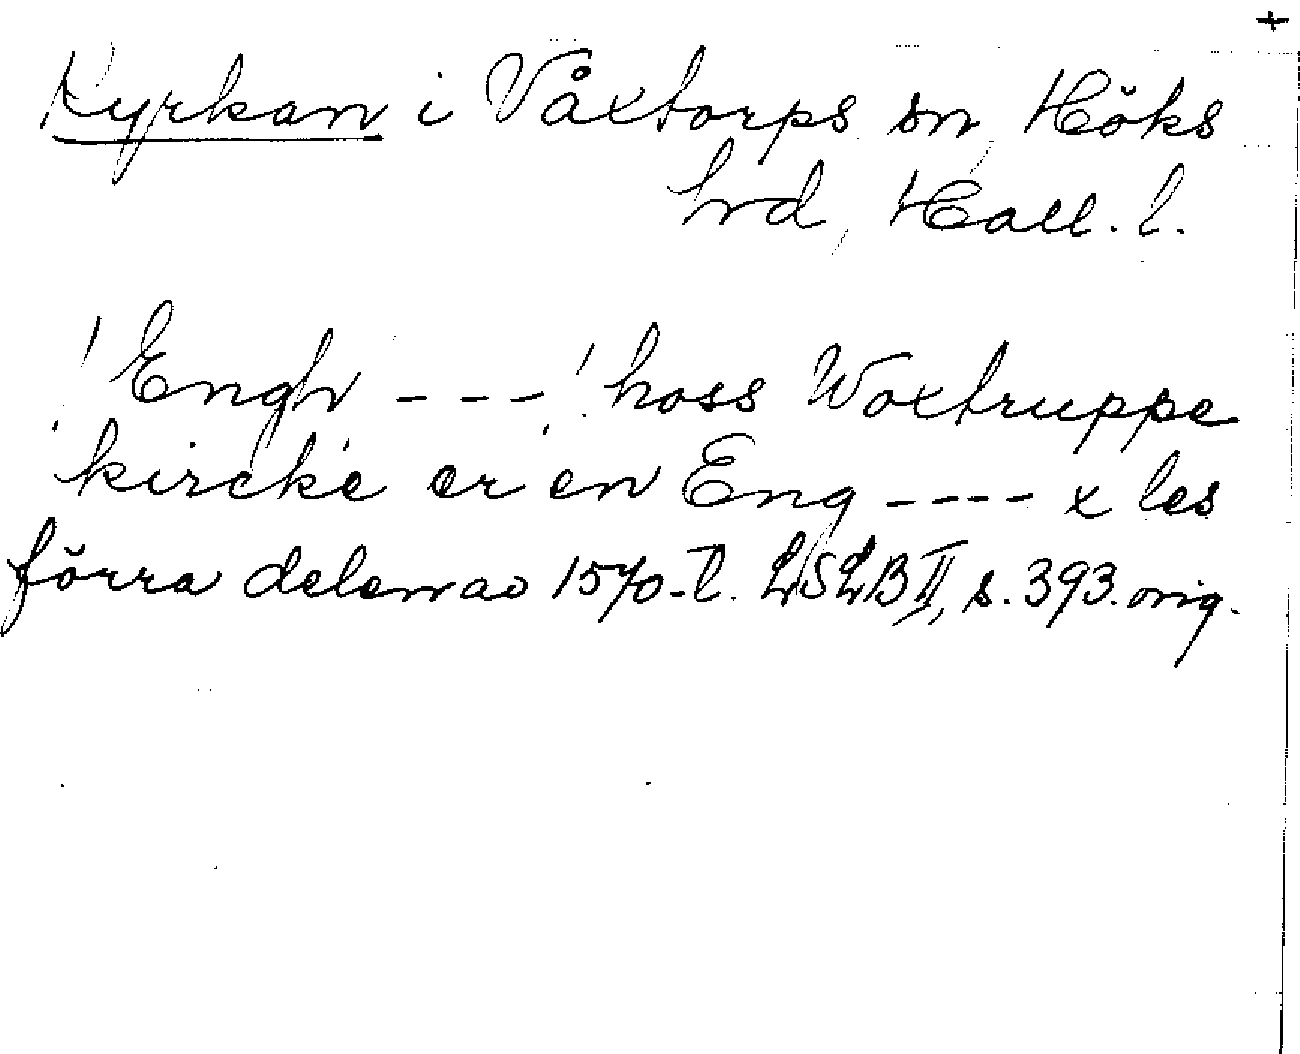 +
Kyrkan i Våxtorps sn, Höks
hrd, Hall. l.
! Engh ---! hoss Woxtruppe
kircke er en Eng ---- x les
förra delen av 1570-t. LSLB II, s. 393. orig.